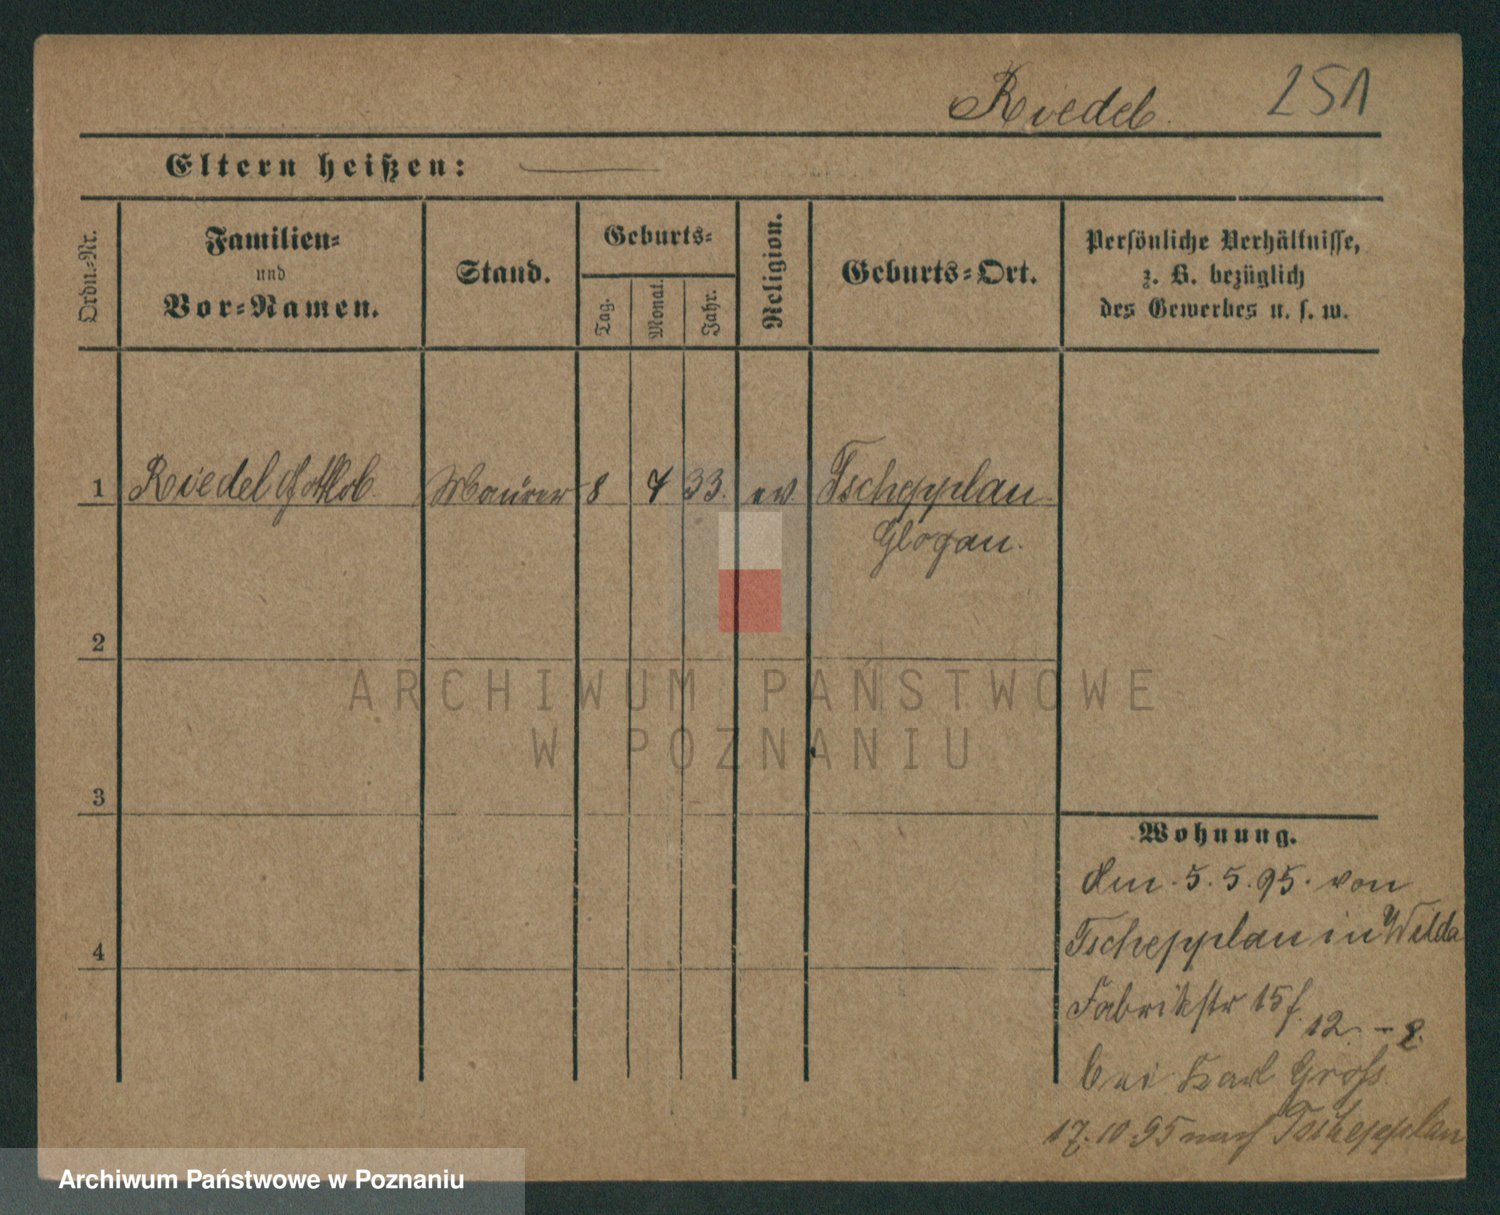 Riedel. 251
Eltern heißen:
Ordn.-Nr.
Familien-
und
Vor-Namen.
Stand.
Geburts-
Tag.
Monat.
Jahr.
Religion.
Geburts-Ort.
Persönliche Verhältnisse,
z. B. bezüglich
des Gewerbes u. s. w.
1 Riedel Gottlob Maurer 8 4 33. ev. Tschepplau
Glogau.
2
3
4
Wohnung.
den 5.5.95. von
Tschepplau in Wilda
Fabrikstr 15f.
bei Karl Groß
17.10.95 nach Tschepplau
ARCHIWUM PAŃSTWOWE
W POZNANIU
Archiwum Państwowe w Poznaniu